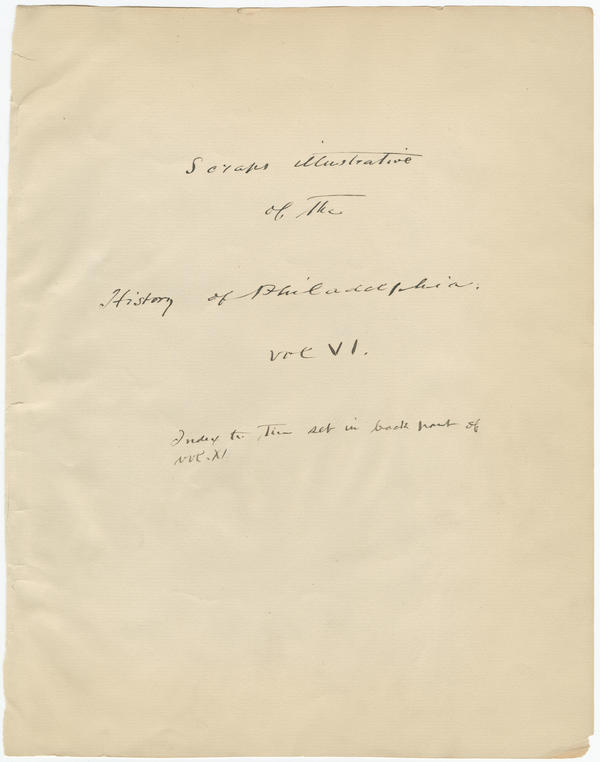 Scraps illustrative
of the
History of Philadelphia.
Vol VI.
Index to this set in back part of
Vol. XI